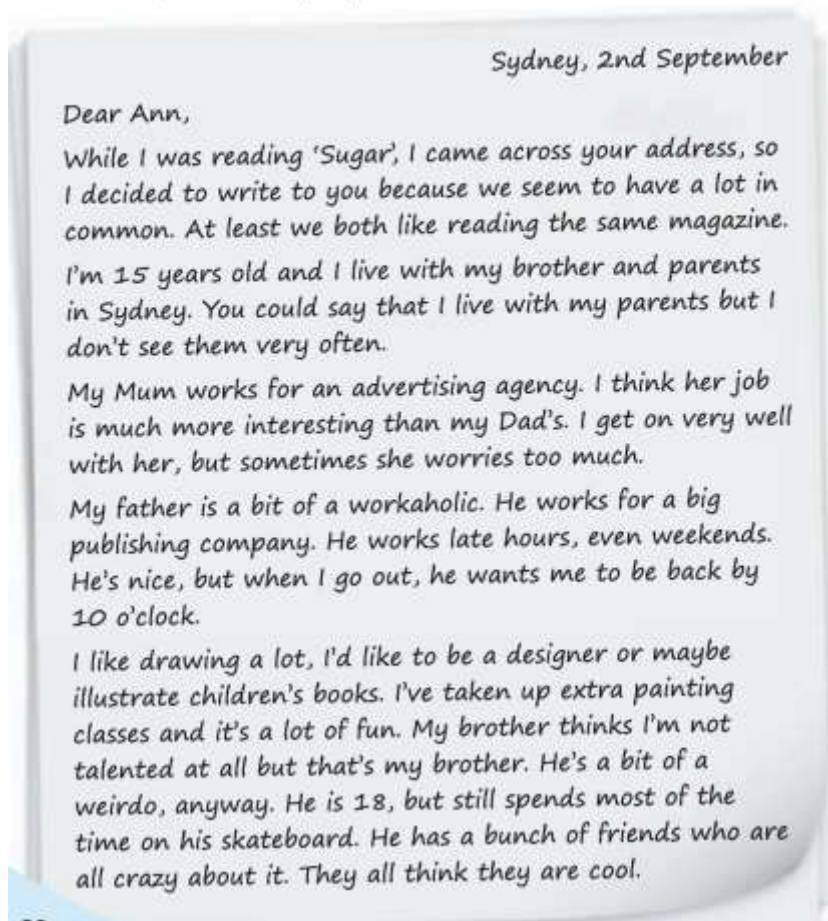 Sydney, 2nd September
Dear Ann,
While I was reading ‘Sugar’, I came across your address, so
I decided to write to you because we seem to have a lot in
common. At least we both like reading the same magazine.
I'm 15 years old and I live with my brother and parents
in Sydney. You could say that I live with my parents but I
don't see them very often.
My Mum works for an advertising agency. I think her job
is much more interesting than my Dad's. I get on very well
with her, but sometimes she worries too much.
My father is a bit of a workaholic. He works for a big
publishing company. He works late hours, even weekends.
He's nice, but when I go out, he wants me to be back by
10 o'clock.
I like drawing a lot, I'd like to be a designer or maybe
illustrate children's books. I've taken up extra painting
classes and it's a lot of fun. My brother thinks I'm not
talented at all but that's my brother. He's a bit of a
weirdo, anyway. He is 18, but still spends most of the
time on his skateboard. He has a bunch of friends who are
all crazy about it. They all think they are cool.